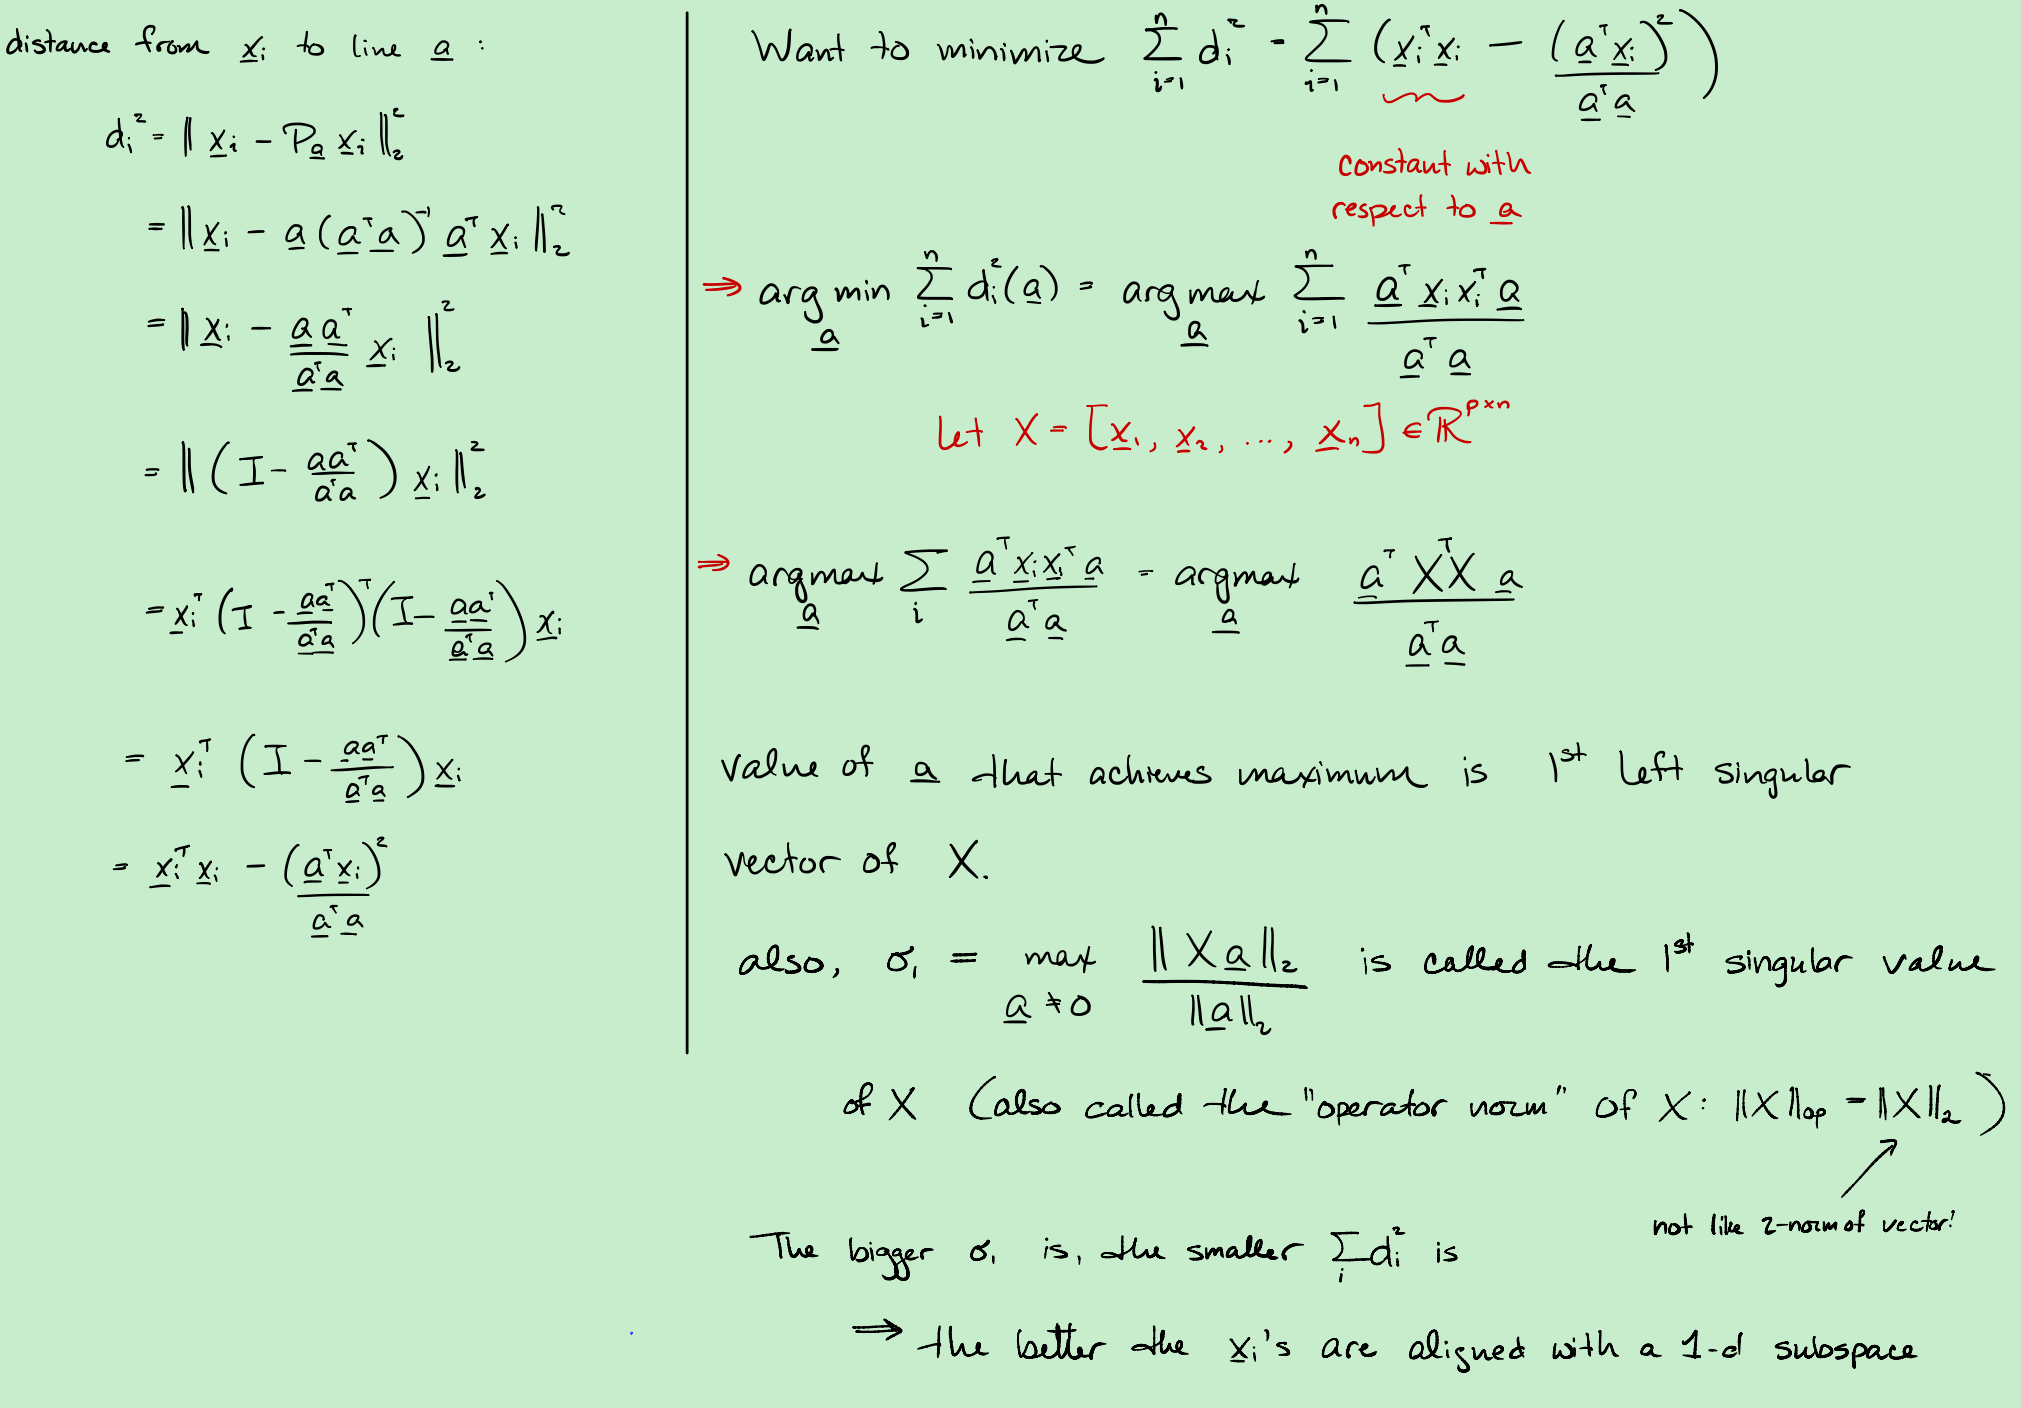 distance from x̲ᵢ to line a̲ :
dᵢ² = ‖ x̲ᵢ − P_a̲ x̲ᵢ ‖₂²
= ‖ x̲ᵢ − a̲ (a̲ᵀa̲)⁻¹ a̲ᵀ x̲ᵢ ‖₂²
= ‖ x̲ᵢ − (a̲ a̲ᵀ / a̲ᵀa̲) x̲ᵢ ‖₂²
= ‖ (I − aaᵀ / aᵀa) x̲ᵢ ‖₂²
= x̲ᵢᵀ (I − a̲a̲ᵀ / a̲ᵀa̲)ᵀ (I − a̲a̲ᵀ / a̲ᵀa̲) x̲ᵢ
= x̲ᵢᵀ (I − a̲a̲ᵀ / a̲ᵀa̲) x̲ᵢ
= x̲ᵢᵀ x̲ᵢ − (a̲ᵀx̲ᵢ)² / a̲ᵀa̲
Want to minimize ∑_{i=1}^{n} dᵢ² = ∑_{i=1}^{n} (x̲ᵢᵀx̲ᵢ − (a̲ᵀx̲ᵢ)² / a̲ᵀa̲)
constant with
respect to a̲
⇒ arg min_a̲ ∑_{i=1}^{n} dᵢ²(a̲) = arg max_a̲ ∑_{i=1}^{n} a̲ᵀ x̲ᵢxᵢᵀ a̲ / a̲ᵀ a̲
Let X = [x̲₁, x̲₂, ..., x̲ₙ] ∈ ℝ^{p×n}
⇒ argmax_a̲ ∑_i a̲ᵀx̲ᵢx̲ᵢᵀa̲ / a̲ᵀa̲ = argmax_a̲ a̲ᵀ XᵀX a̲ / a̲ᵀa̲
value of a̲ that achieves maximum is 1st left singular
vector of X.
also, σ₁ = max_{a̲ ≠ 0} ‖Xa̲‖₂ / ‖a̲‖₂ is called the 1st singular value
of X (also called the "operator norm" of X: ‖X‖_op = ‖X‖₂)
not like 2-norm of vector!
The bigger σ₁ is, the smaller ∑_i dᵢ² is
⇒ the better the x̲ᵢ's are aligned with a 1-d subspace